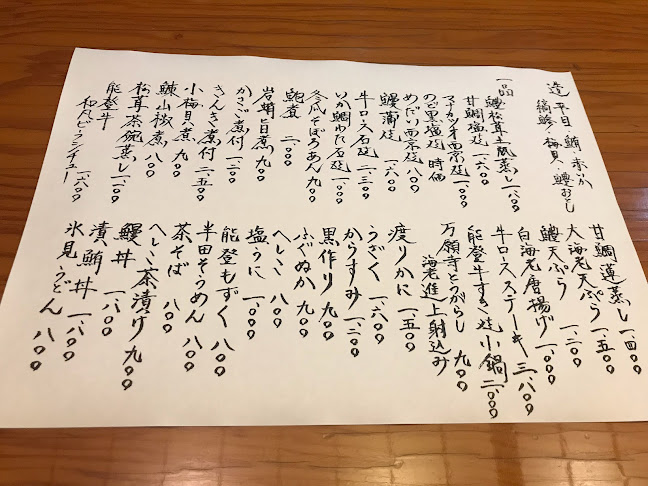 造 平目・鮪・赤いか
縞鯵・梅貝・鱧おとし
一品
鱧松茸土瓶蒸し 一、八〇〇
甘鯛塩焼 一、六〇〇
マナカツオ西京焼 一、〇〇〇
のど黒塩焼 時価
めだい西京焼 八〇〇
鰻蒲焼 一、六〇〇
牛ロース石焼 二、三〇〇
いか鯛わた石焼 一、〇〇〇
冬瓜そぼろあん 九〇〇
鮑煮 二、〇〇〇
岩蛸旨煮 九〇〇
かさご煮付 一、二〇〇
きんき煮付 二、五〇〇
小梅貝煮 九〇〇
鰊山椒煮 八〇〇
松茸茶碗蒸し 一、〇〇〇
能登牛
和風ビーフシチュー 一、八〇〇
甘鯛蓮蒸し 一、四〇〇
大海老天ぷら 一、五〇〇
鱧天ぷら 一、二〇〇
白海老唐揚げ 一、〇〇〇
牛ロースステーキ 三、八〇〇
能登牛すき焼小鍋 二、〇〇〇
万願寺とうがらし 九〇〇
海老進上射込み
渡りかに 一、五〇〇
うざく 一、六〇〇
からすみ 一、二〇〇
黒作り 九〇〇
ふぐぬか 九〇〇
へしこ 八〇〇
塩うに 一、〇〇〇
能登もずく 八〇〇
半田そうめん 八〇〇
茶そば 八〇〇
へしこ茶漬け 九〇〇
鰻丼 一、八〇〇
漬鮪丼 一、八〇〇
氷見うどん 八〇〇